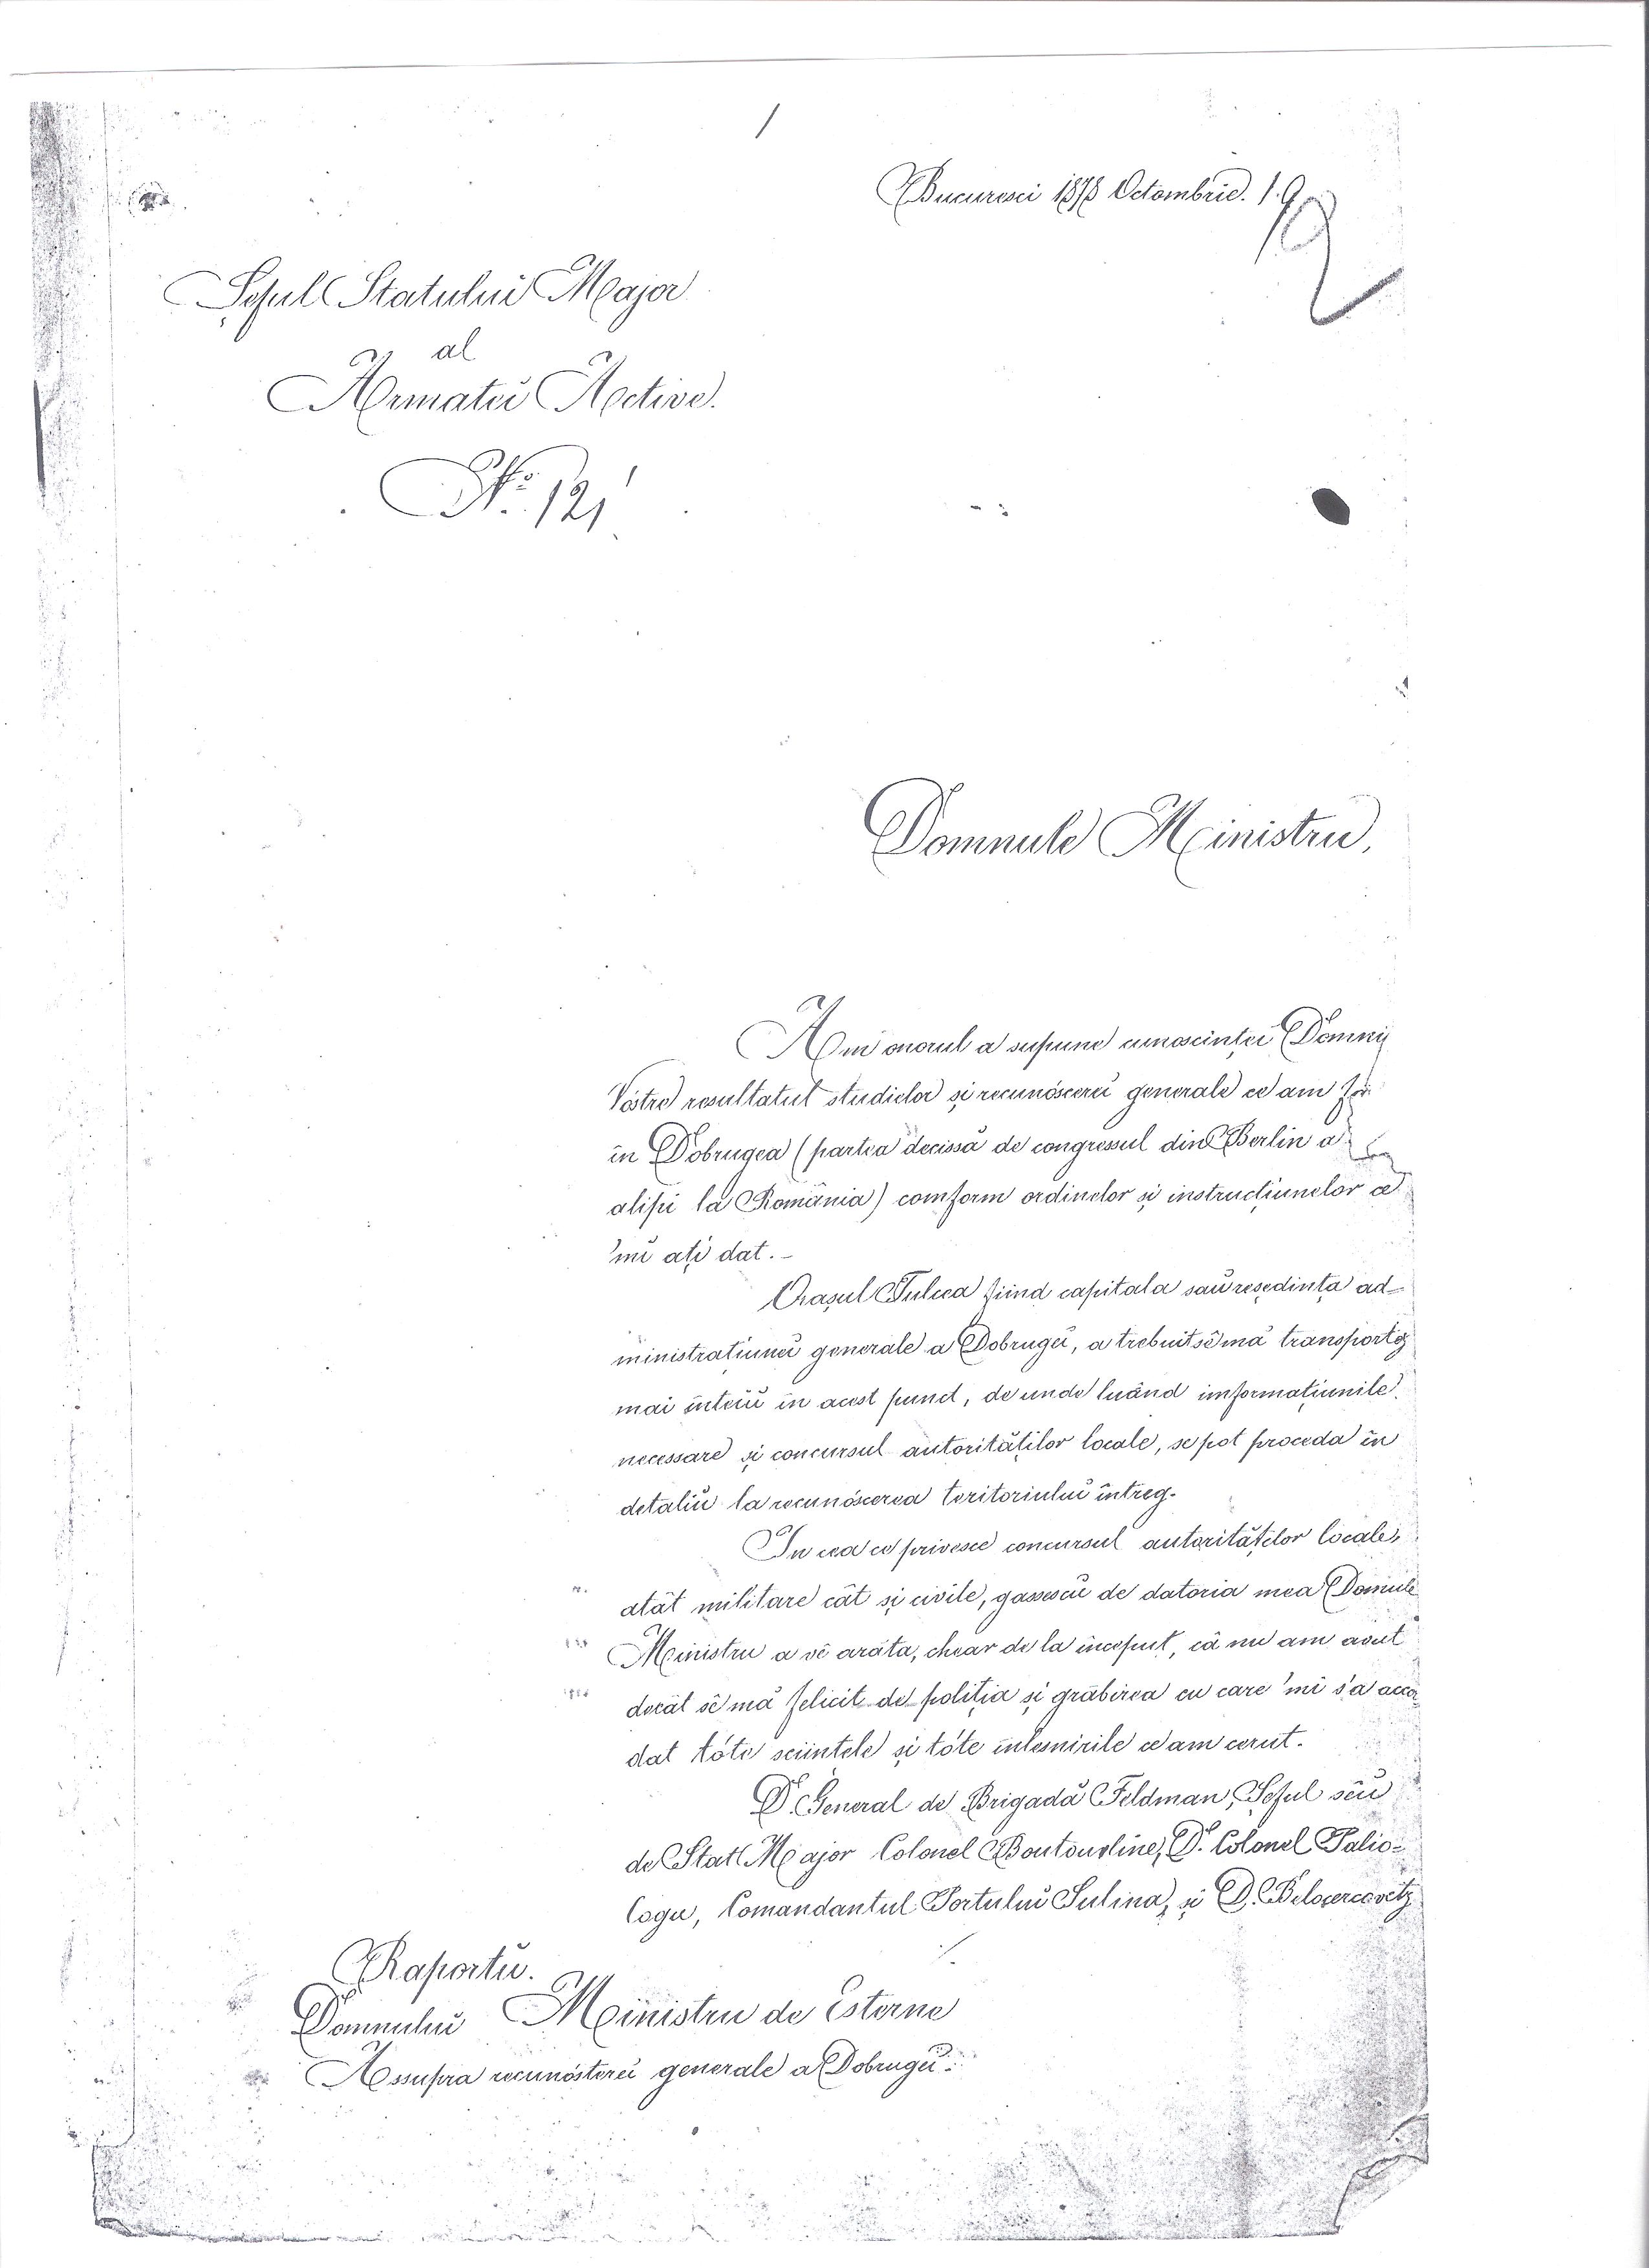 Bucuresci 1878 Octombrie. 19
Șeful Statului Major
al
Armatei Active.
No. 121
Domnule Ministru,
Am onorul a supune cunoscinței Domniĭ
Vóstre resultatul studielor și recunóscereĭ generale ce am
în Dobrugea (partea decissă de congressul din Berlin a
alipi la România) comform ordinelor și instrucțiunelor ce
'mĭ ațĭ dat. –
Orașul Tulcea fiind capitala saŭ reședința ad-
ministrațiuneĭ generale a Dobrugeĭ, a trebuit sĕ mă transportez
mai ânteiŭ în acest punct, de unde luând imformațiunile
necessare și concursul autorităților locale, se pot proceda în
detaliŭ la recunóscerea teritoriuluĭ întreg.
In cea ce privesce concursul autoritățelor locale,
atât militare cât și civile, gassescŭ de datoria mea Domnule
Ministru a vĕ arăta, chear de la început, că nu am avut
decât sĕ mă felicit de poliția și grăbirea cu care 'mĭ s'a acco-
dat tóte sciințele și tóte înlesnirile ce am cerut.
D. General de Brigadă Feldman, Șeful sĕŭ
de Stat Major Colonel Boutourline, D. Colonel Palio-
logu, Comandantul Portuluĭ Sulina, și D. Belocercovitz
Raportŭ.
Domnuluĭ Ministru de Esterne
Assupra recunóștereĭ generale a Dobrugeĭ.